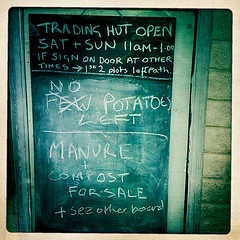 TRADING HUT OPEN
SAT + SUN 11am - 1:00
IF SIGN ON DOOR AT OTHER
TIMES → 1st 2 plots left path.
NO
FEW POTATOES
LEFT
MANURE
+
COMPOST
FOR SALE
+ see other board